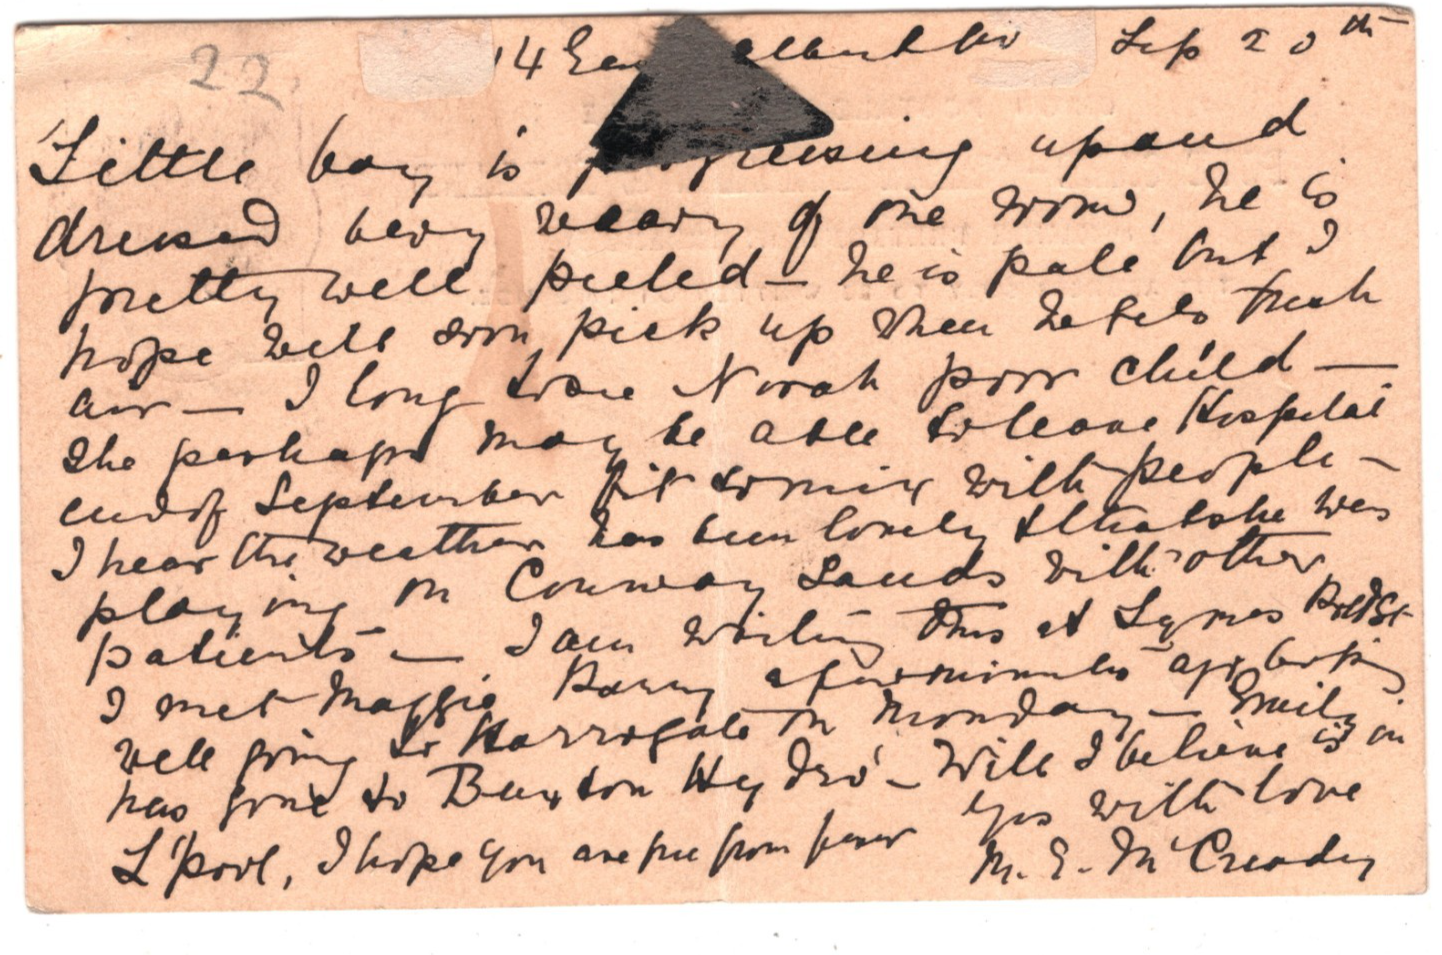 22
14 Sep 20th
Little boy is progressing up and
dressed very weary of one room, he is
pretty well peeled — he is pale but I
hope will soon pick up when he gets fresh
air — I long to see Norah poor child —
She perhaps may be able to leave Hospital
end of September fit to mix with people —
I hear the weather has been lovely & that she was
playing on Conway Sands with other
patients — I am writing this at Lymes Bold St
I met Maggie Barry a few minutes ago looking
well going to Harrogate on Monday — Emily
has gone to Buxton Hydro' — Will I believe is in
L'pool, I hope you are free from fever yrs with love
M. E. McCready